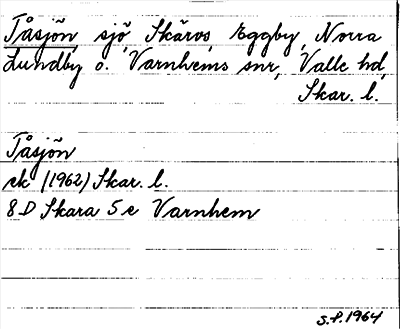 Tåsjön, sjö, Skärvs, Eggby, Norra
Lundby o. Varnhems snr, Valle hd,
Skar. l.
Tåsjön
ek (1962) Skar. l.
8D Skara 5e Varnhem
S.P. 1964